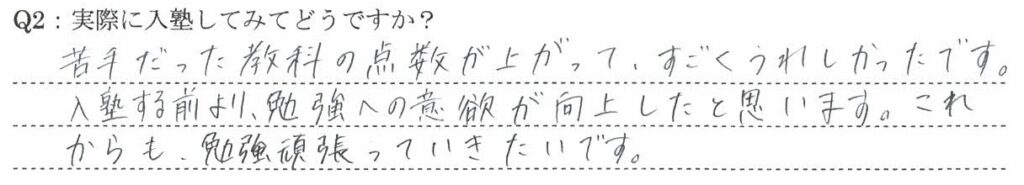 Q2：実際に入塾してみてどうですか？
苦手だった教科の点数が上がって、すごくうれしかったです。
入塾する前より、勉強への意欲が向上したと思います。これ
からも、勉強頑張っていきたいです。